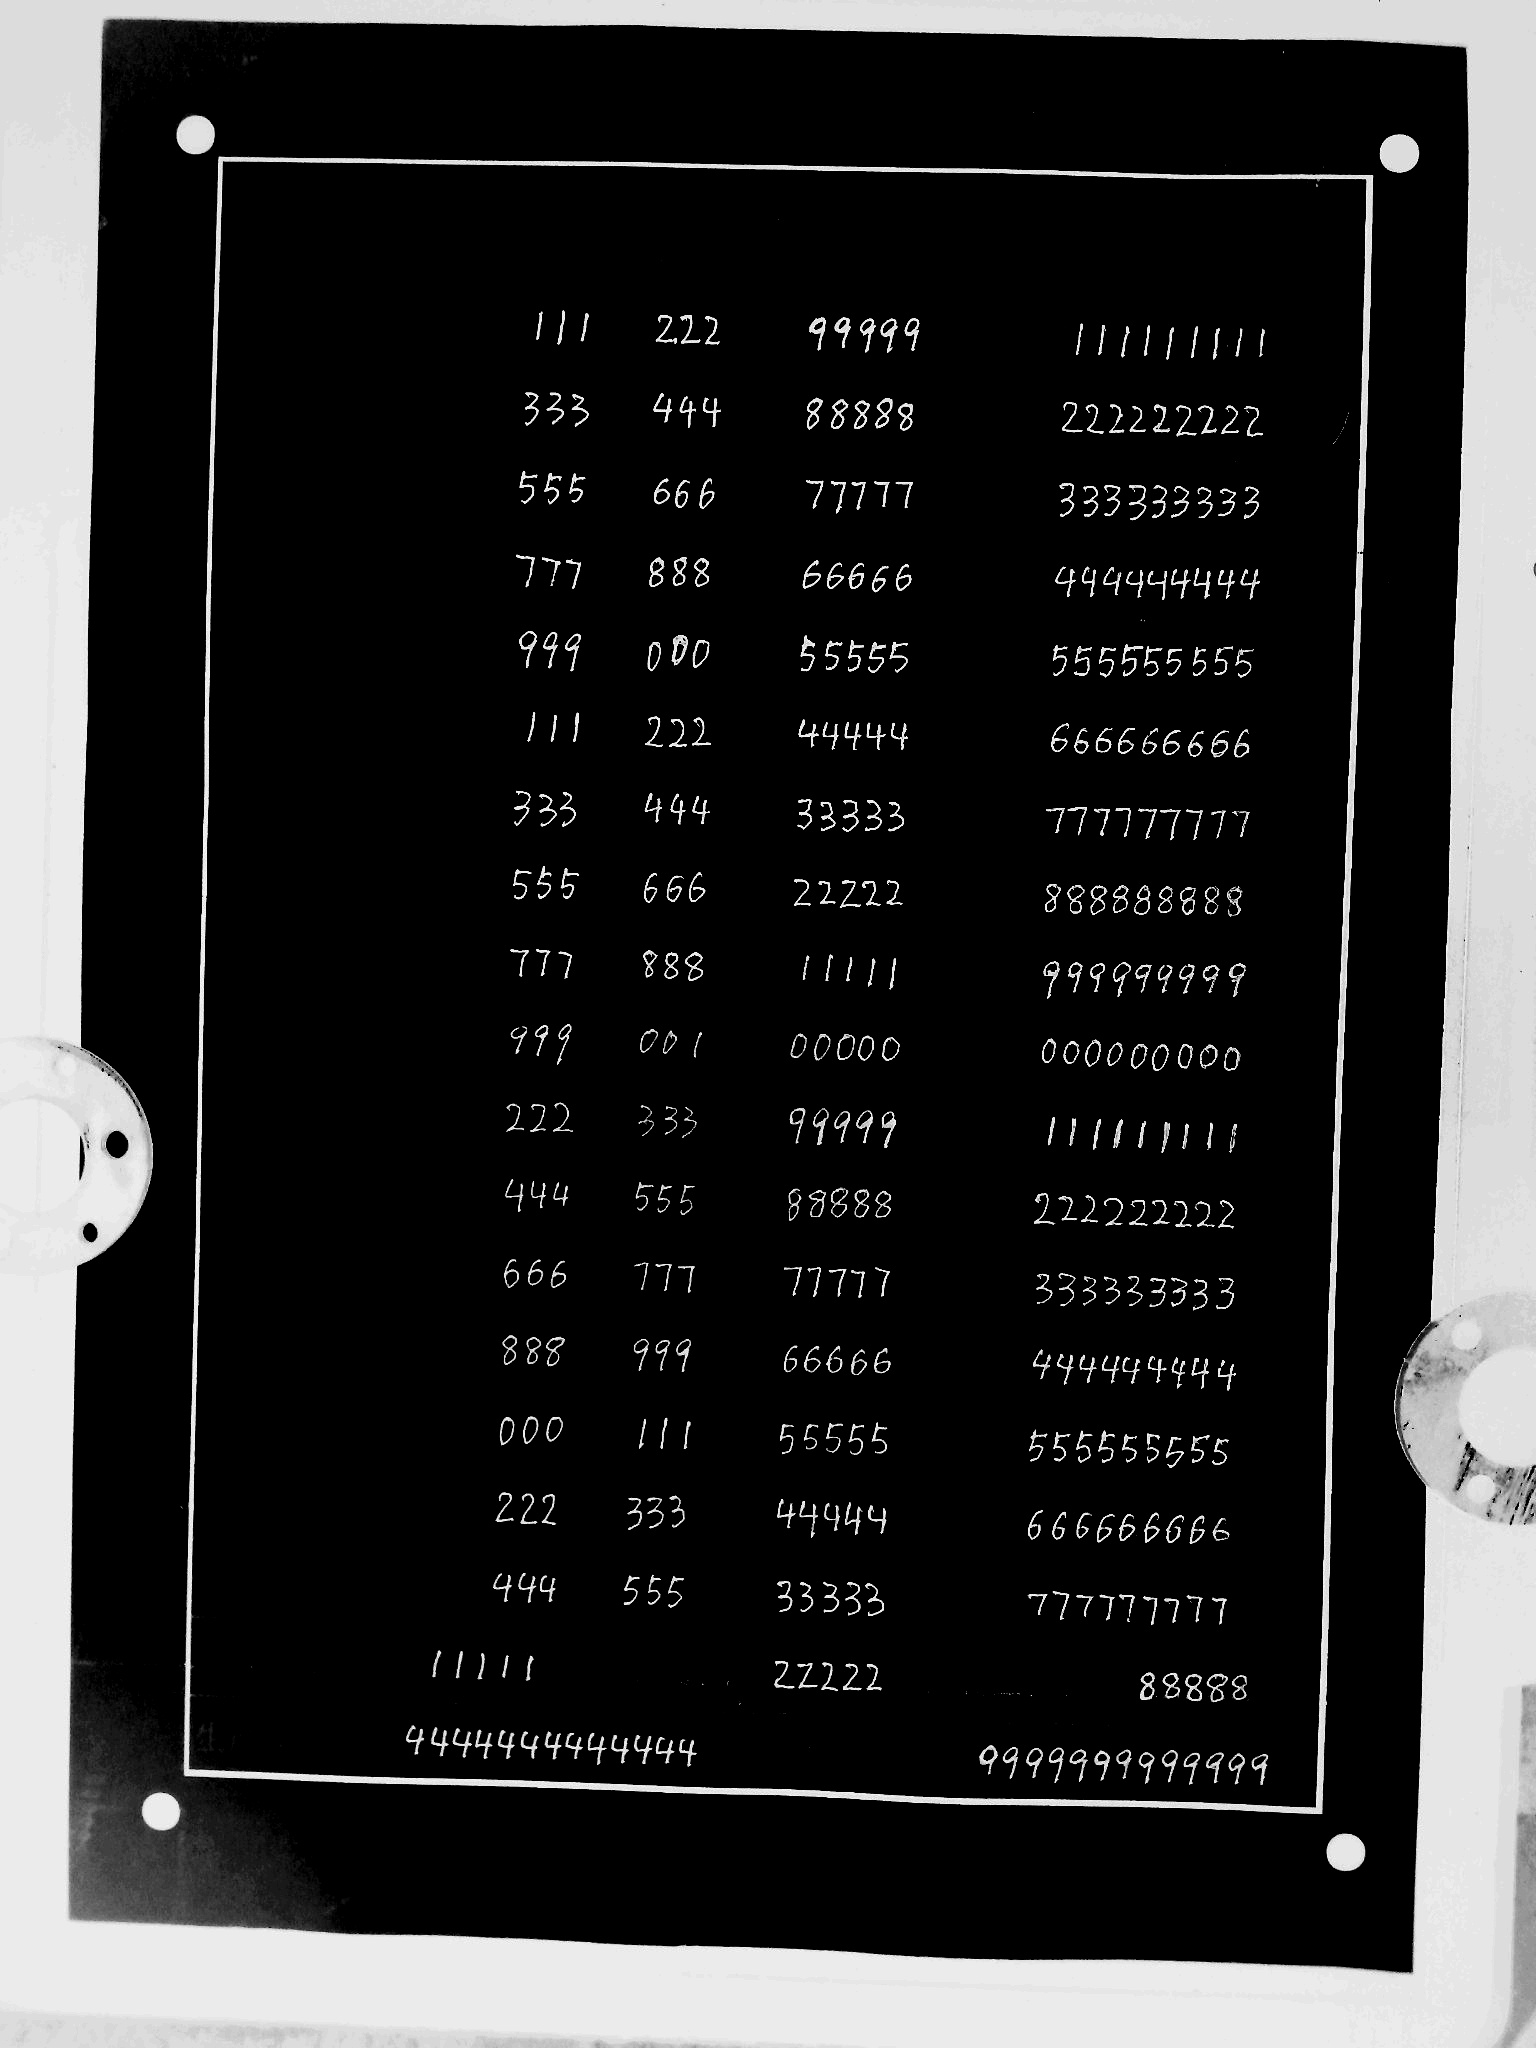 111 222 99999 111111111
333 444 88888 222222222
555 666 77777 333333333
777 888 66666 444444444
999 000 55555 555555555
111 222 44444 666666666
333 444 33333 777777777
555 666 22222 888888888
777 888 11111 999999999
999 001 00000 000000000
222 333 99999 111111111
444 555 88888 222222222
666 777 77777 333333333
888 999 66666 444444444
000 111 55555 555555555
222 333 44444 666666666
444 555 33333 777777777
11111 22222 88888
4444444444444 9999999999999